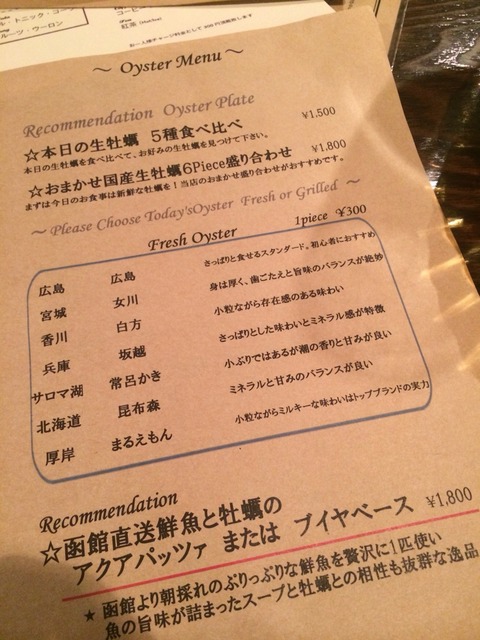 トニック・コーン
ルーツ・ウーロン
コーヒー
紅茶
～ Oyster Menu ～
Recommendation Oyster Plate
☆本日の生牡蠣 5種食べ比べ ¥1,500
本日の生牡蠣を食べ比べて、お好みの生牡蠣を見つけて下さい。
☆おまかせ国産生牡蠣6Piece盛り合わせ ¥1,800
まずは今日のお食事は新鮮な牡蠣を！当店のおまかせ盛り合わせがおすすめです。
～ Please Choose Today'sOyster Fresh or Grilled ～
Fresh Oyster 1piece ¥300
広島 広島 さっぱりと食せるスタンダード。初心者におすすめ
宮城 女川 身は厚く、歯ごたえと旨味のバランスが絶妙
香川 白方 小粒ながら存在感のある味わい
兵庫 坂越 さっぱりとした味わいとミネラル感が特徴
サロマ湖 常呂かき 小ぶりではあるが潮の香りと甘みが良い
北海道 昆布森 ミネラルと甘みのバランスが良い
厚岸 まるえもん 小粒ながらミルキーな味わいはトップブランドの実力
Recommendation
☆函館直送鮮魚と牡蠣の
アクアパッツァ または ブイヤベース ¥1,800
★ 函館より朝採れのぷりっぷりな鮮魚を贅沢に1匹使い
魚の旨味が詰まったスープと牡蠣との相性も抜群な逸品